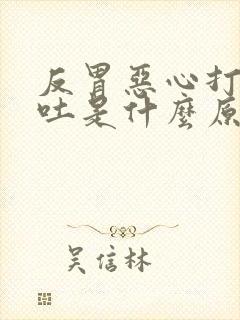 反胃惡心打
吐是什麼原
吴信林